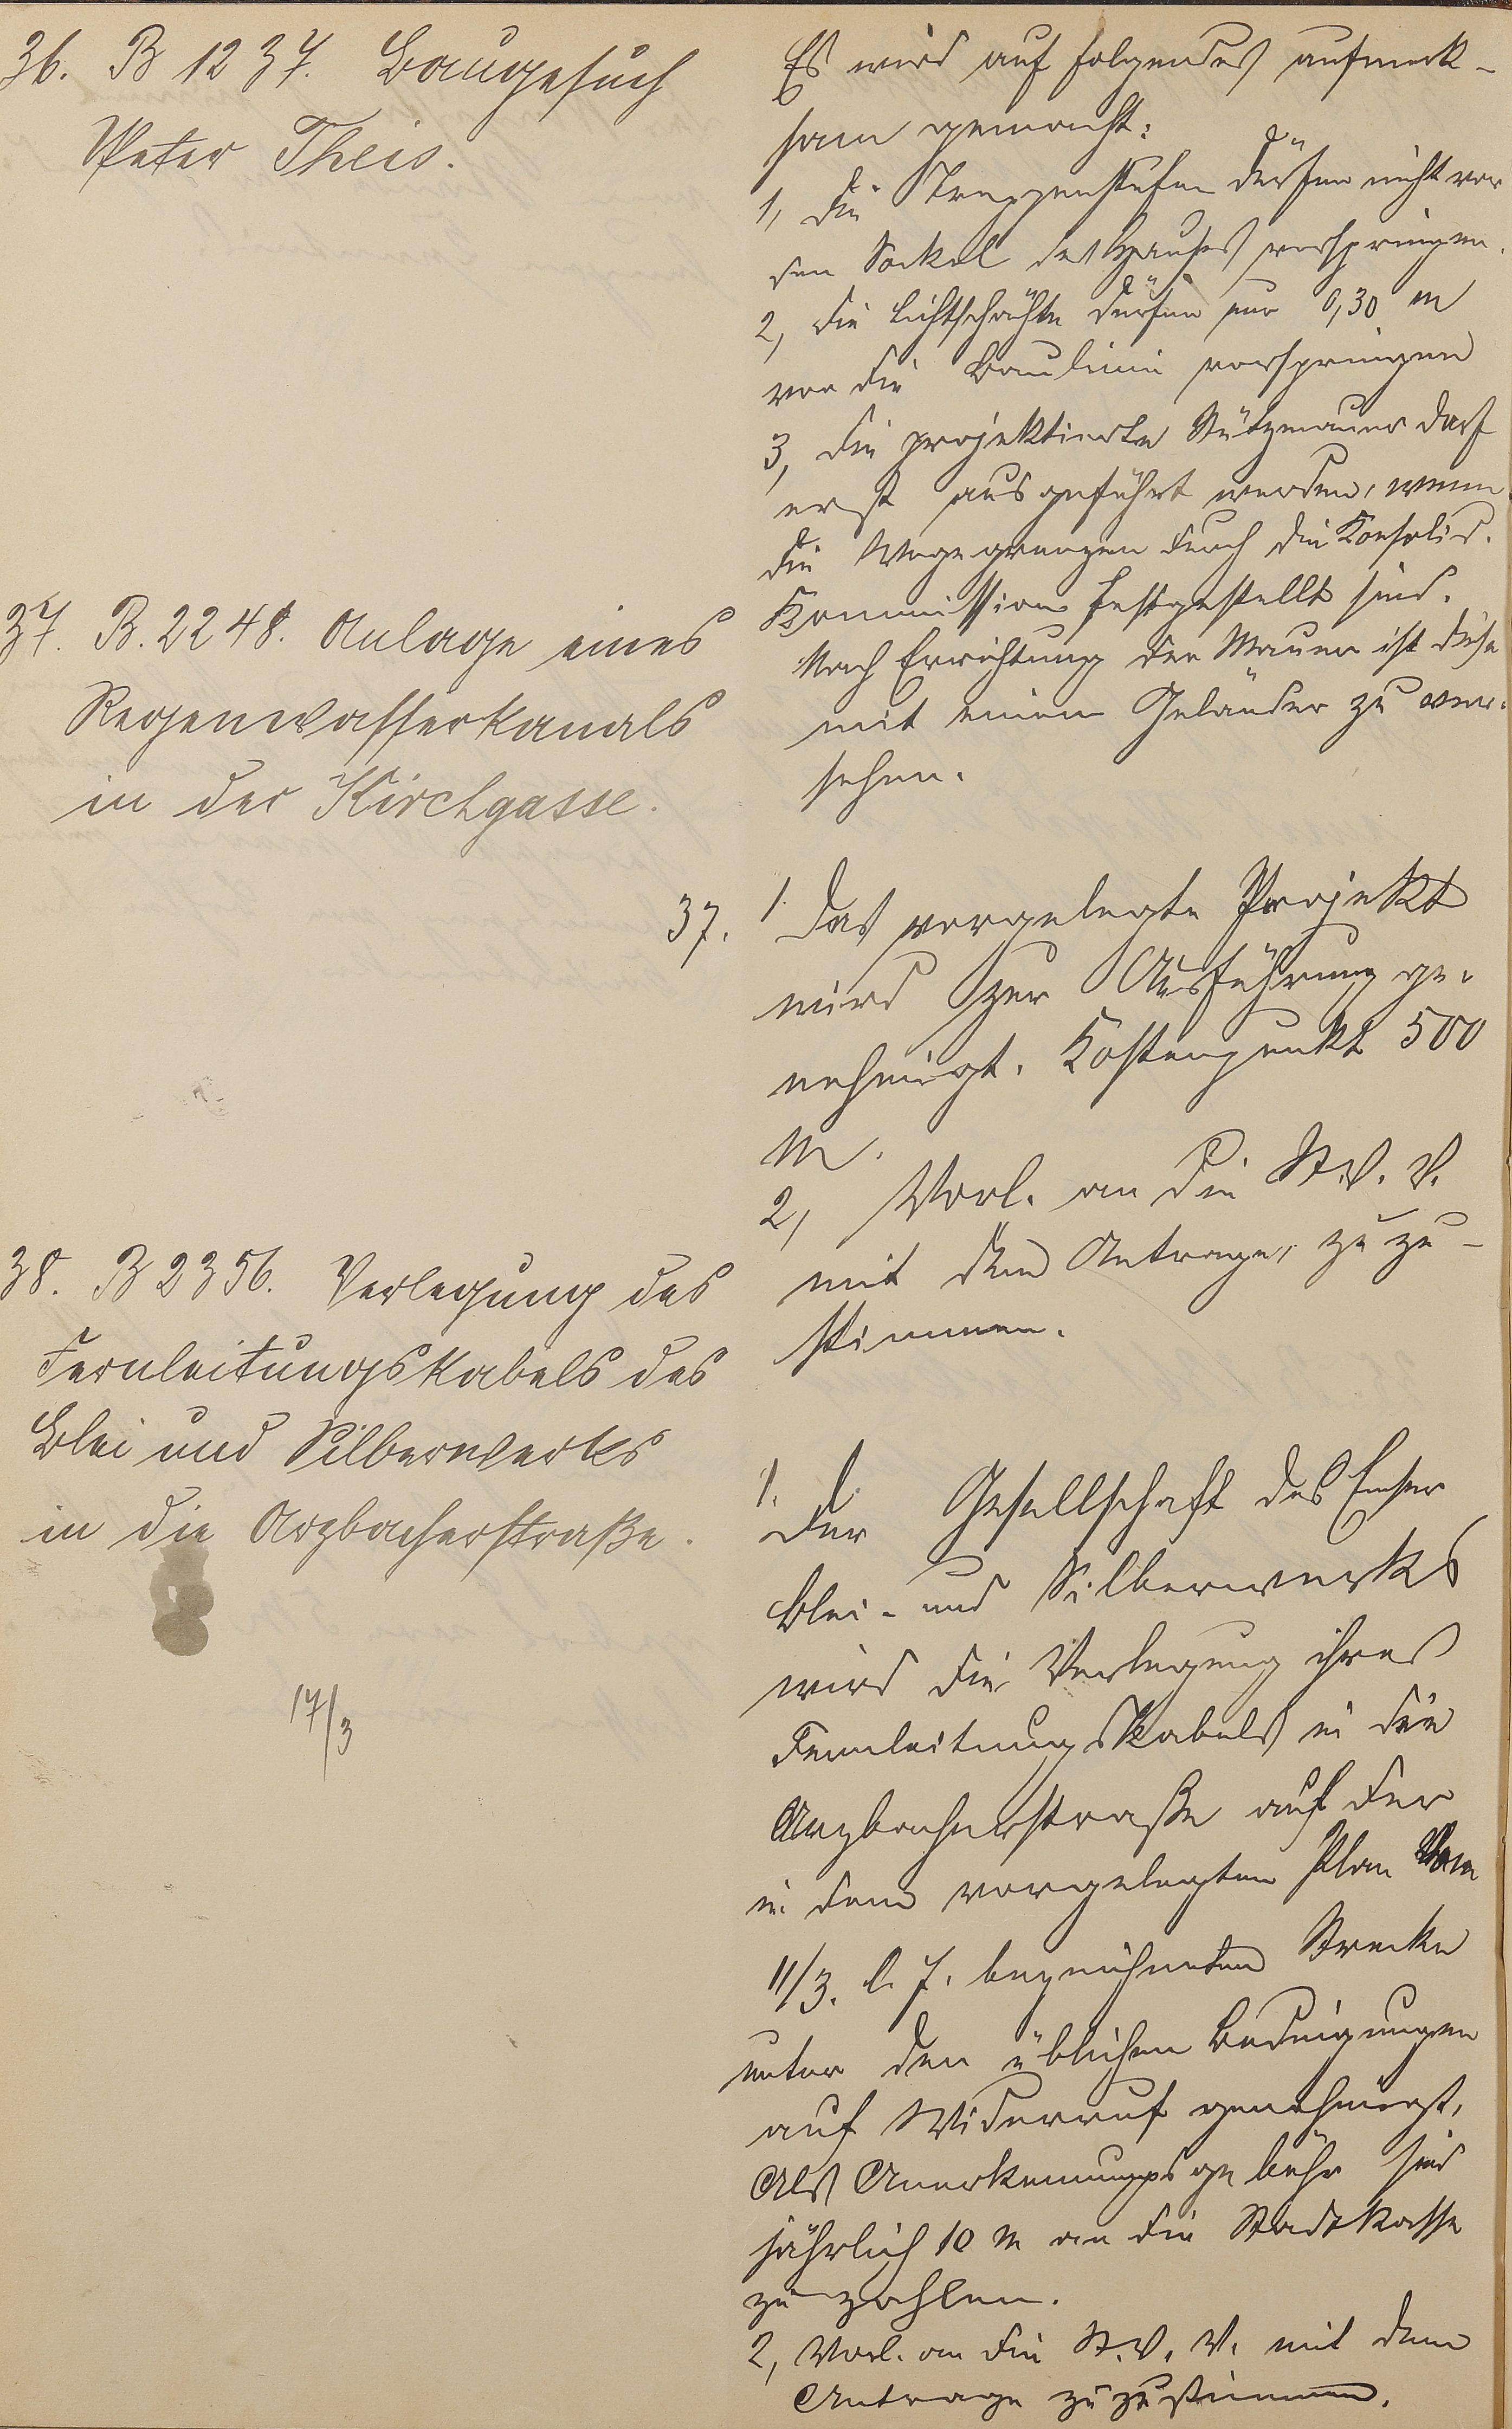 36. B 1237. Baugesuch
Peter Theis.
37. B. 2248. Anlage eines
Regenwasserkanals
in der Kirchgasse.
38. B 2356. Verlegung des
Fernleitungskabels des
Blei und Silberwerks
in die Arzbacherstraße.
17/3
Es wird auf folgendes aufmerk-
sam gemacht:
1, die Treppenstufen dürfen nicht vor
den Sockel des Hauses vorspringen.
2, die Lichtschächte dürfen nur 0,30 m
vor die Baulinie vorspringen
3, die projektierte Stützmauer darf
erst ausgeführt werden, wenn
die Wegegrenzen durch die Konsolid.
Kommission festgestellt sind.
Nach Errichtung der Mauer ist diese
mit einem Geländer zu ver-
sehen.
37. 1. Das vorgelegte Projekt
wird zur Ausführung ge-
nehmigt. Kostenpunkt 500
M.
2, Vorl. an die St. V. V.
mit dem Antrage, zuzu-
stimmen.
1. Der Gesellschaft des Emser
Blei- und Silberwerks
wird die Verlegung ihres
Fernleitungskabels in die
Arzbacherstraße auf der
in dem vorgelegten Plan vom
11/3. l. J. bezeichneten Strecke
unter den üblichen Bedingungen
auf Widerruf genehmigt,
Als Anerkennungsgebühr sind
jährlich 10 M an die Stadtkasse
zu zahlen.
2, Vorl. an die St. V. V. mit dem
Antrage zuzustimmen.